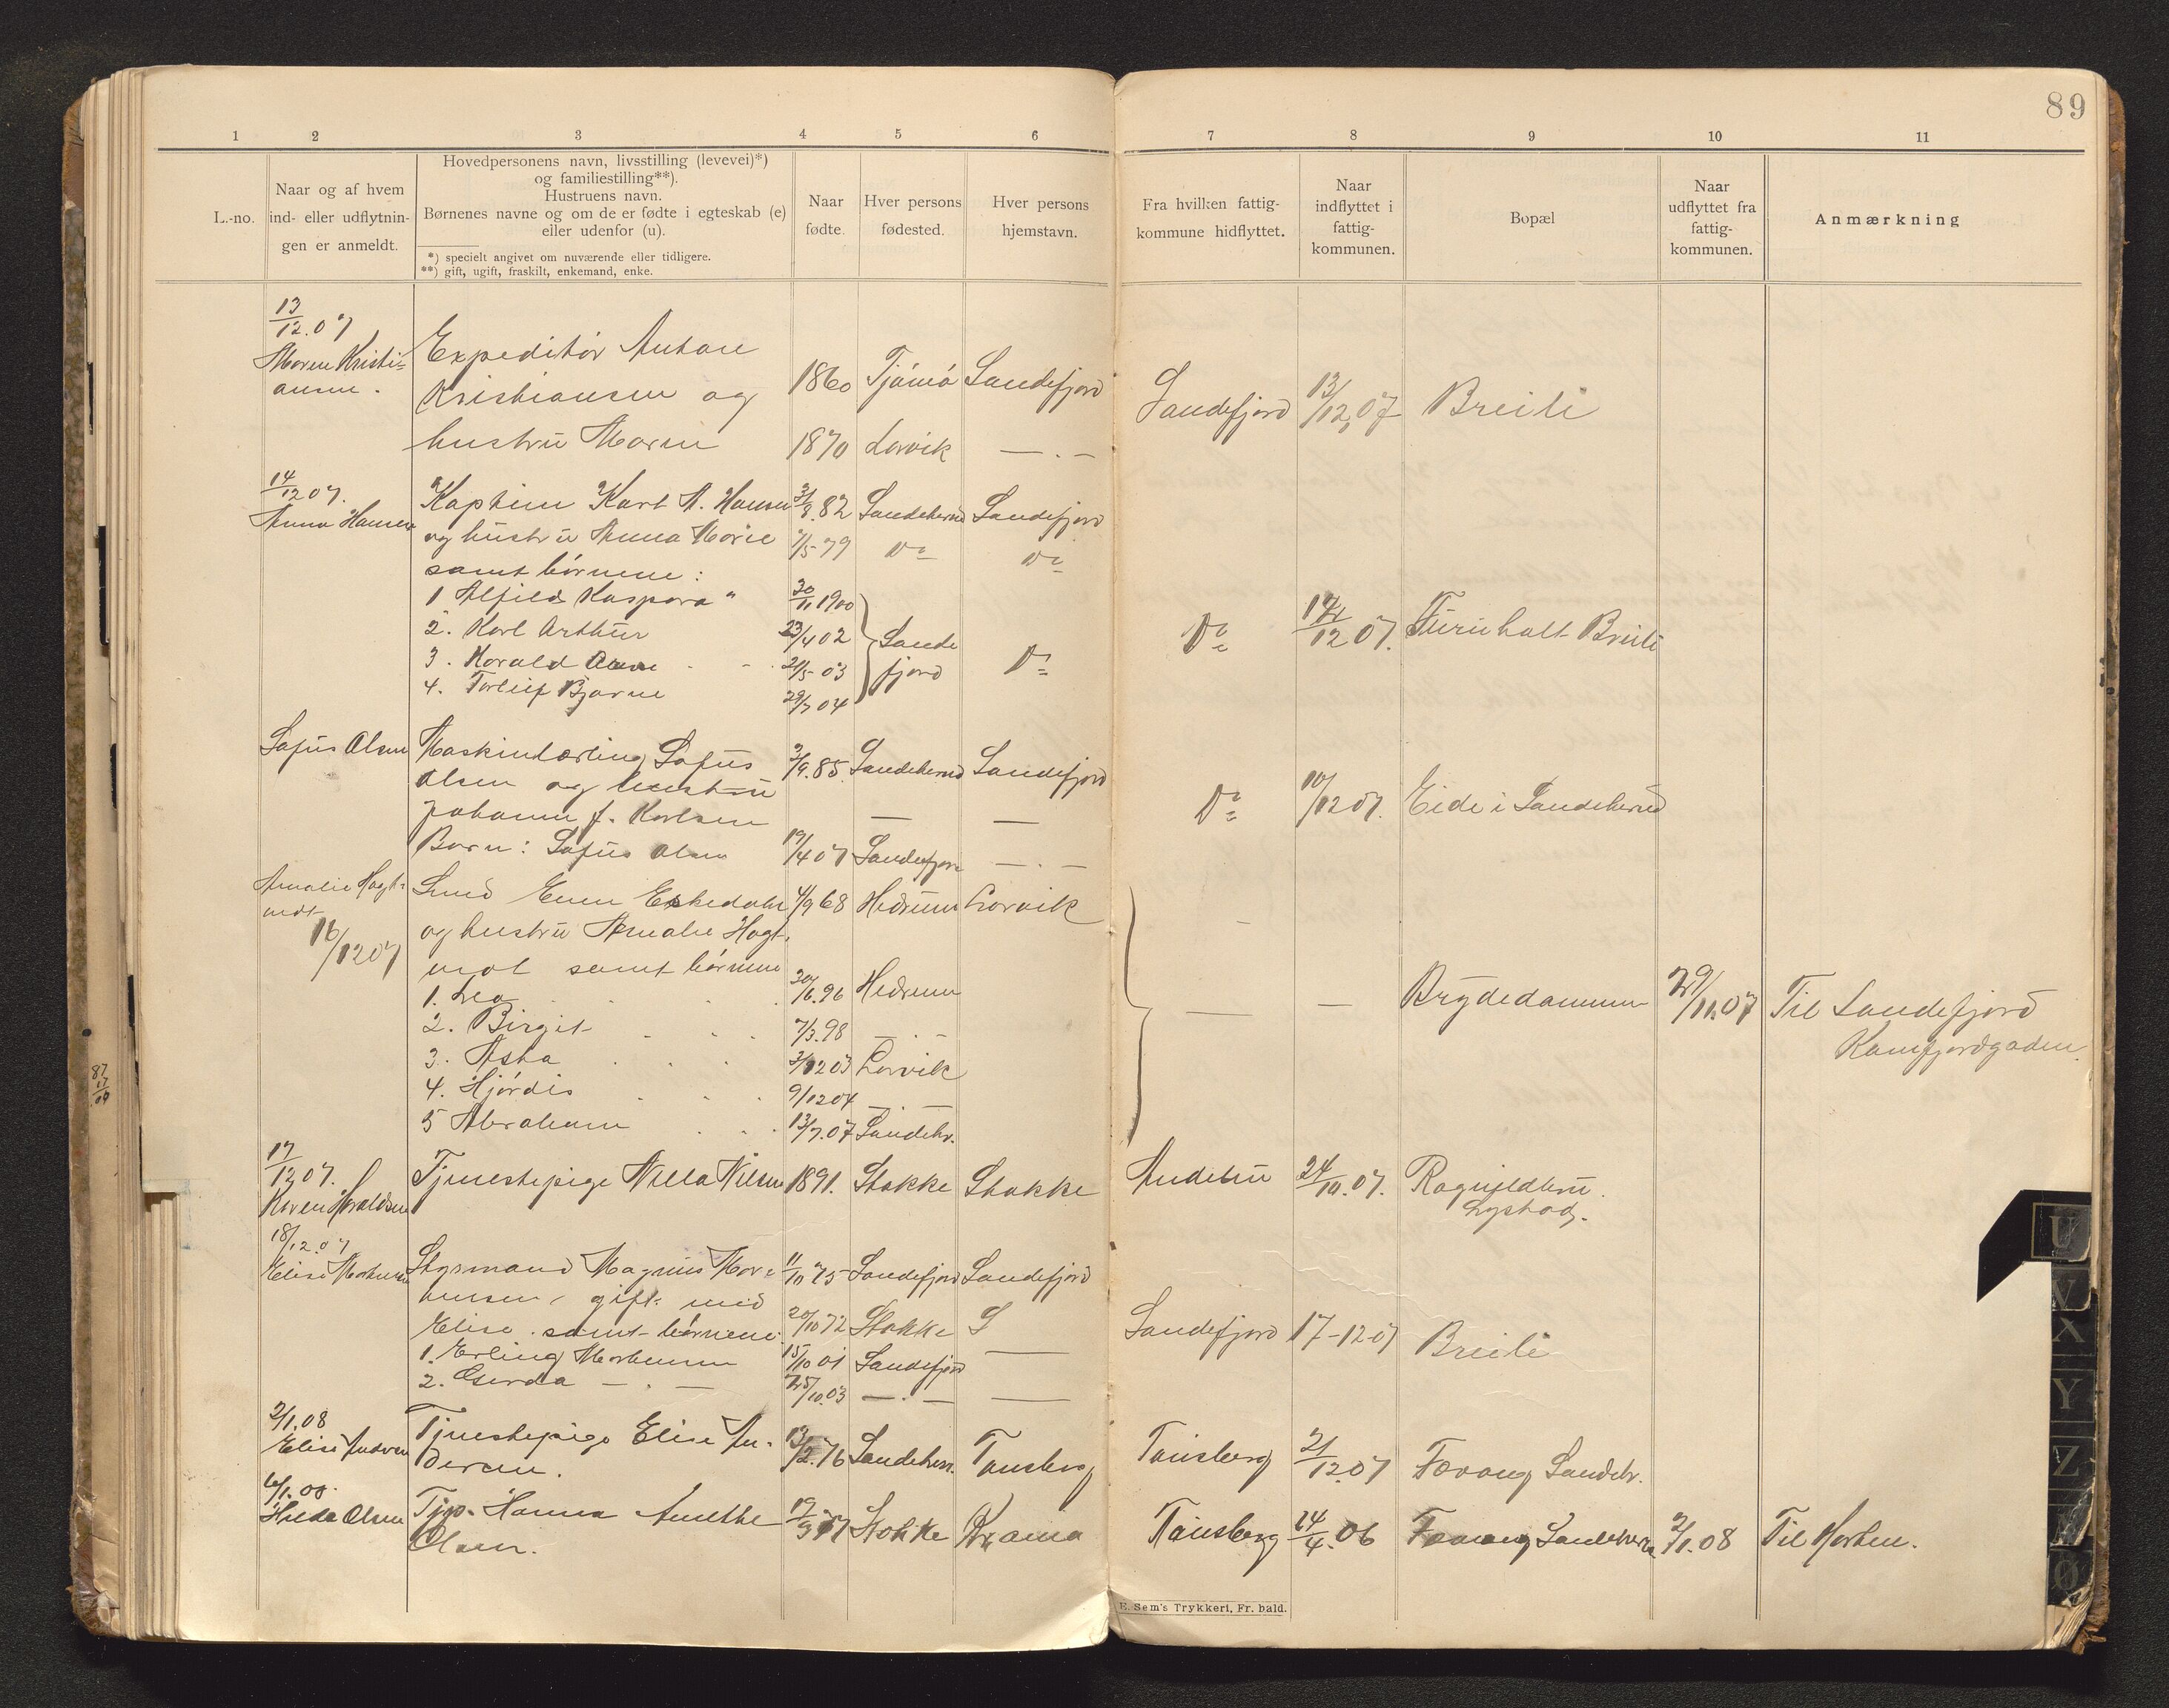 89
1 2 3 4 5 6 7 8 9 10 11
L.-no.
Naar og af hvem
ind- eller udflytnin-
gen er anmeldt.
Hovedpersonens navn, livsstilling (levevei)*)
og familiestilling**).
Hustruens navn.
Børnenes navne og om de er fødte i egteskab (e)
eller udenfor (u).
*) specielt angivet om nuværende eller tidligere.
**) gift, ugift, fraskilt, enkemand, enke.
Naar
fødte.
Hver persons
fødested.
Hver persons
hjemstavn.
Fra hvilken fattig-
kommune hidflyttet.
Naar
indflyttet i
fattig-
kommunen.
Bopæl
Naar
udflyttet fra
fattig-
kommunen.
Anmærkning
13/12.07
Maren Kristi-
ansen.
Expeditør Anton
Kristiansen og 1860 Tjømø Sandefjord Sandefjord 13/12,07 Breili
hustru Maren 1870 Larvik — . —
14/12 07.
Anna Hansen
Kaptein Karl A. Hansen 82 Sandeherred Sandefjord
og hustru Anna Marie 79 Do Do
samt børnene:
1 Alfild Kaspara " 30/11 1900
2. Karl Arthur 23/4 02 Sande
3. Harald 03 fjord Do Do 12 07. Furuholt Breili
4. Torleif Bjarne 29/7 04
Sofus Olsen
Maskinlærling Sofus 2/9.85. Sandeherred Sandefjord
Olsen og hustru Do 10/12 07. Eide i Sandeherred
Johanne f. Karlsen — —
Barn: Sofus Olsen 19/4 07 Sandefjord — . —
Amalie Hagt-
vedt
16/12 07
Smed Even Eskedahl 4/9 68 Hedrum Larvik
og hustru Amalie Hagt-
vedt samt børnene
1. Lea 30/6.96 Hedrum
2. Birgit 7/3.98 — . —
3. Asta 12 03 Larvik
4. Hjørdis 9/12 04 — . —
5 Abraham 13/7.07 Sandehr.
— — Brydedammen 29/11.07 Til Sandefjord
Kamfjordgaden.
17/12 07.
Karen Haraldsen
Tjenestepige Nilla Nilsen 1891. Stokke Stokke Andebu 24/10.07. Ragnhildsrø.
Lystad.
18/12.07
Elise Marthinsen
Styrmand Magnus Mar- 11/10 75 Sandefjord Sandefjord
thinsen, gift med
Elise. samt børnene. 20/10 72 Stokke S Sandefjord 17-12-07 Breili
1. Erling Marthinsen 15/10 01 Sandefjord —
2. Gerda — . — 25/10.03 — . — —
2/1.08
Elise Andersen
Tjenestepige Elise An-
dersen. 13/2.76 Sandeherr. Tønsberg Tønsberg 21/12.07 Fevang Sandehr.
6/1.08.
Hilda Olsen
Tjp. Hanna Amethe 77 Stokke Kr.ania Tønsberg 24/4.06 Fevang Sandeherred 2/1.08 Til Horten.
Olsen.
E. Sem's Trykkeri, Fr. hald.
87
17
09
U
V
X
Y
Z
Æ
Ø